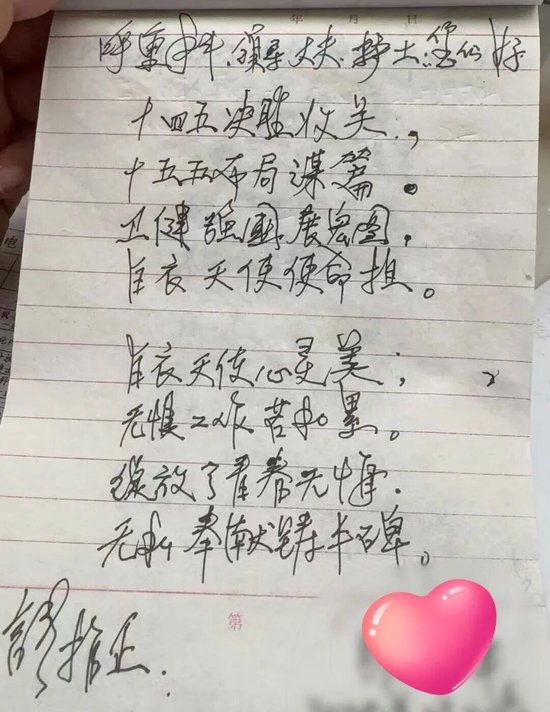 年 月 日
呼重科.领导.大夫.护士.您们好
十四五决胜收关,
十五五布局谋篇。
卫健强国展宏图,
白衣天使使命担。
白衣天使心灵美;
无惧工作苦和累。
绽放了青春无悔.
无私奉献铸丰碑。
请指正.
第